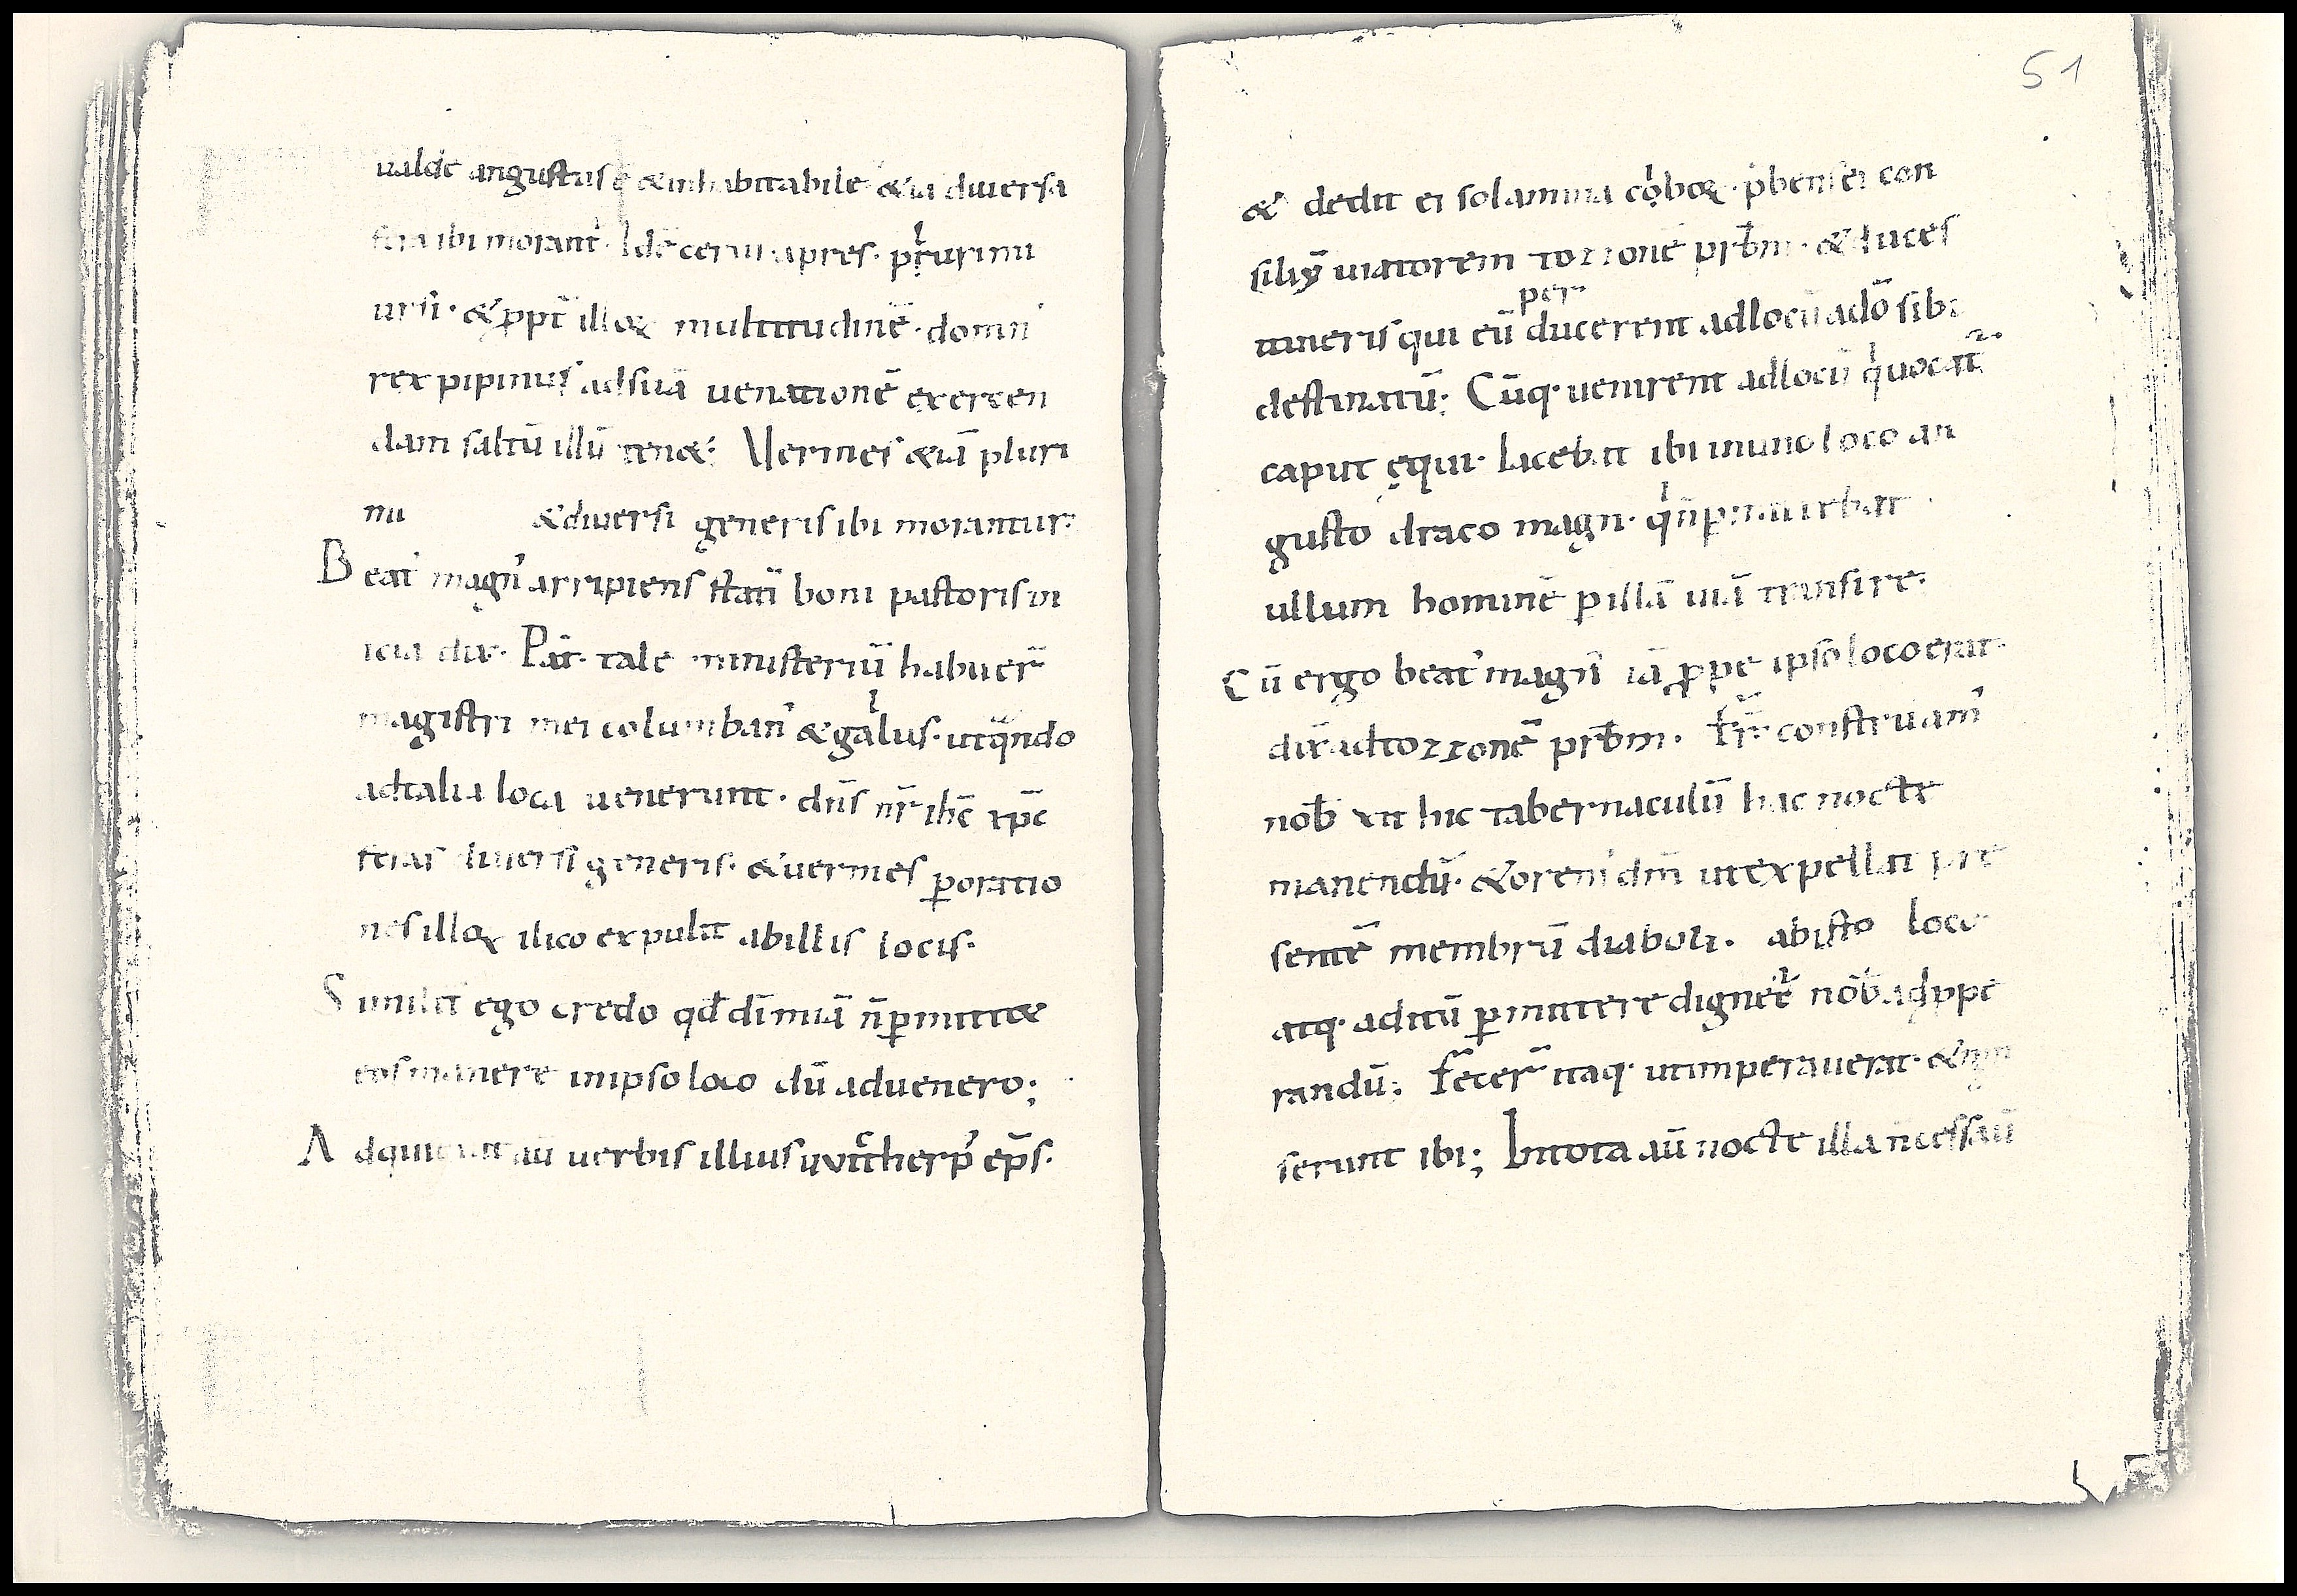 ualde angustus ē &inhabitabile &ia diuersa
fera ibi morant͛. Idē cerui apres. pt̄urimi
ursi. &ꝓpt̄ illoꝝ multitudinē. domn᾽
rex pipinus adsuā uenationē exercen
dam saltū illū ten&; Vermes &iā pluri
mi &diuersi generis ibi morantur;
Beat᾽ magn᾽ arripiens statū boni pastoris in
icia dix̄. Pat̄. tale ministeriū habuer̄
magistri mei columban᾽ &galus. utqͣndo
adtalia loca uenerunt. dn̄s nr̄ ih̄c xp̄c
feras diuersi generis. &uermes ꝑoratio
nes illoꝝ ilico expulit abillis locis.
Similit̄ ego credo qd̄ dīmiā n̄ꝑmitt&
eos manere inipso loco dū aduenero;
Adquieuit aū uerbis illius uuictherp᾽ ep̄s.
51
& dedit ei solamina cͦboꝝ. p̄bens ei con
siliū uiatorem tozzonē prb̄m. &duces
itineris qui eū ducerent adlocū adō sibi
per
destinatū; Cūq. uenirent adlocū qͥuocat̄
caput ęqui. Iacebat ibi inuno loco an
gusto draco magn᾽. qͥn̄ permittebat
ullum hominē ꝑillā uiā transire.
Cū ergo beat᾽ magn᾽ iā ꝓpe ipso loco erat.
dix̄ adtozzonē prb̄m. Fr̄. construam᾽
nob̄ xit hic tabernaculū hac nocte
manendū. &orem᾽ dn̄m utexpellat pre
sentē membrū diaboli. abisto loco
atq. aditū ꝑmittere dignet᷑ nōb̄ adꝓpe
randū; Fecer̄ itaq. utimperauerat. &man
serunt ibi; Intota aū nocte illa n̄cessau᾽